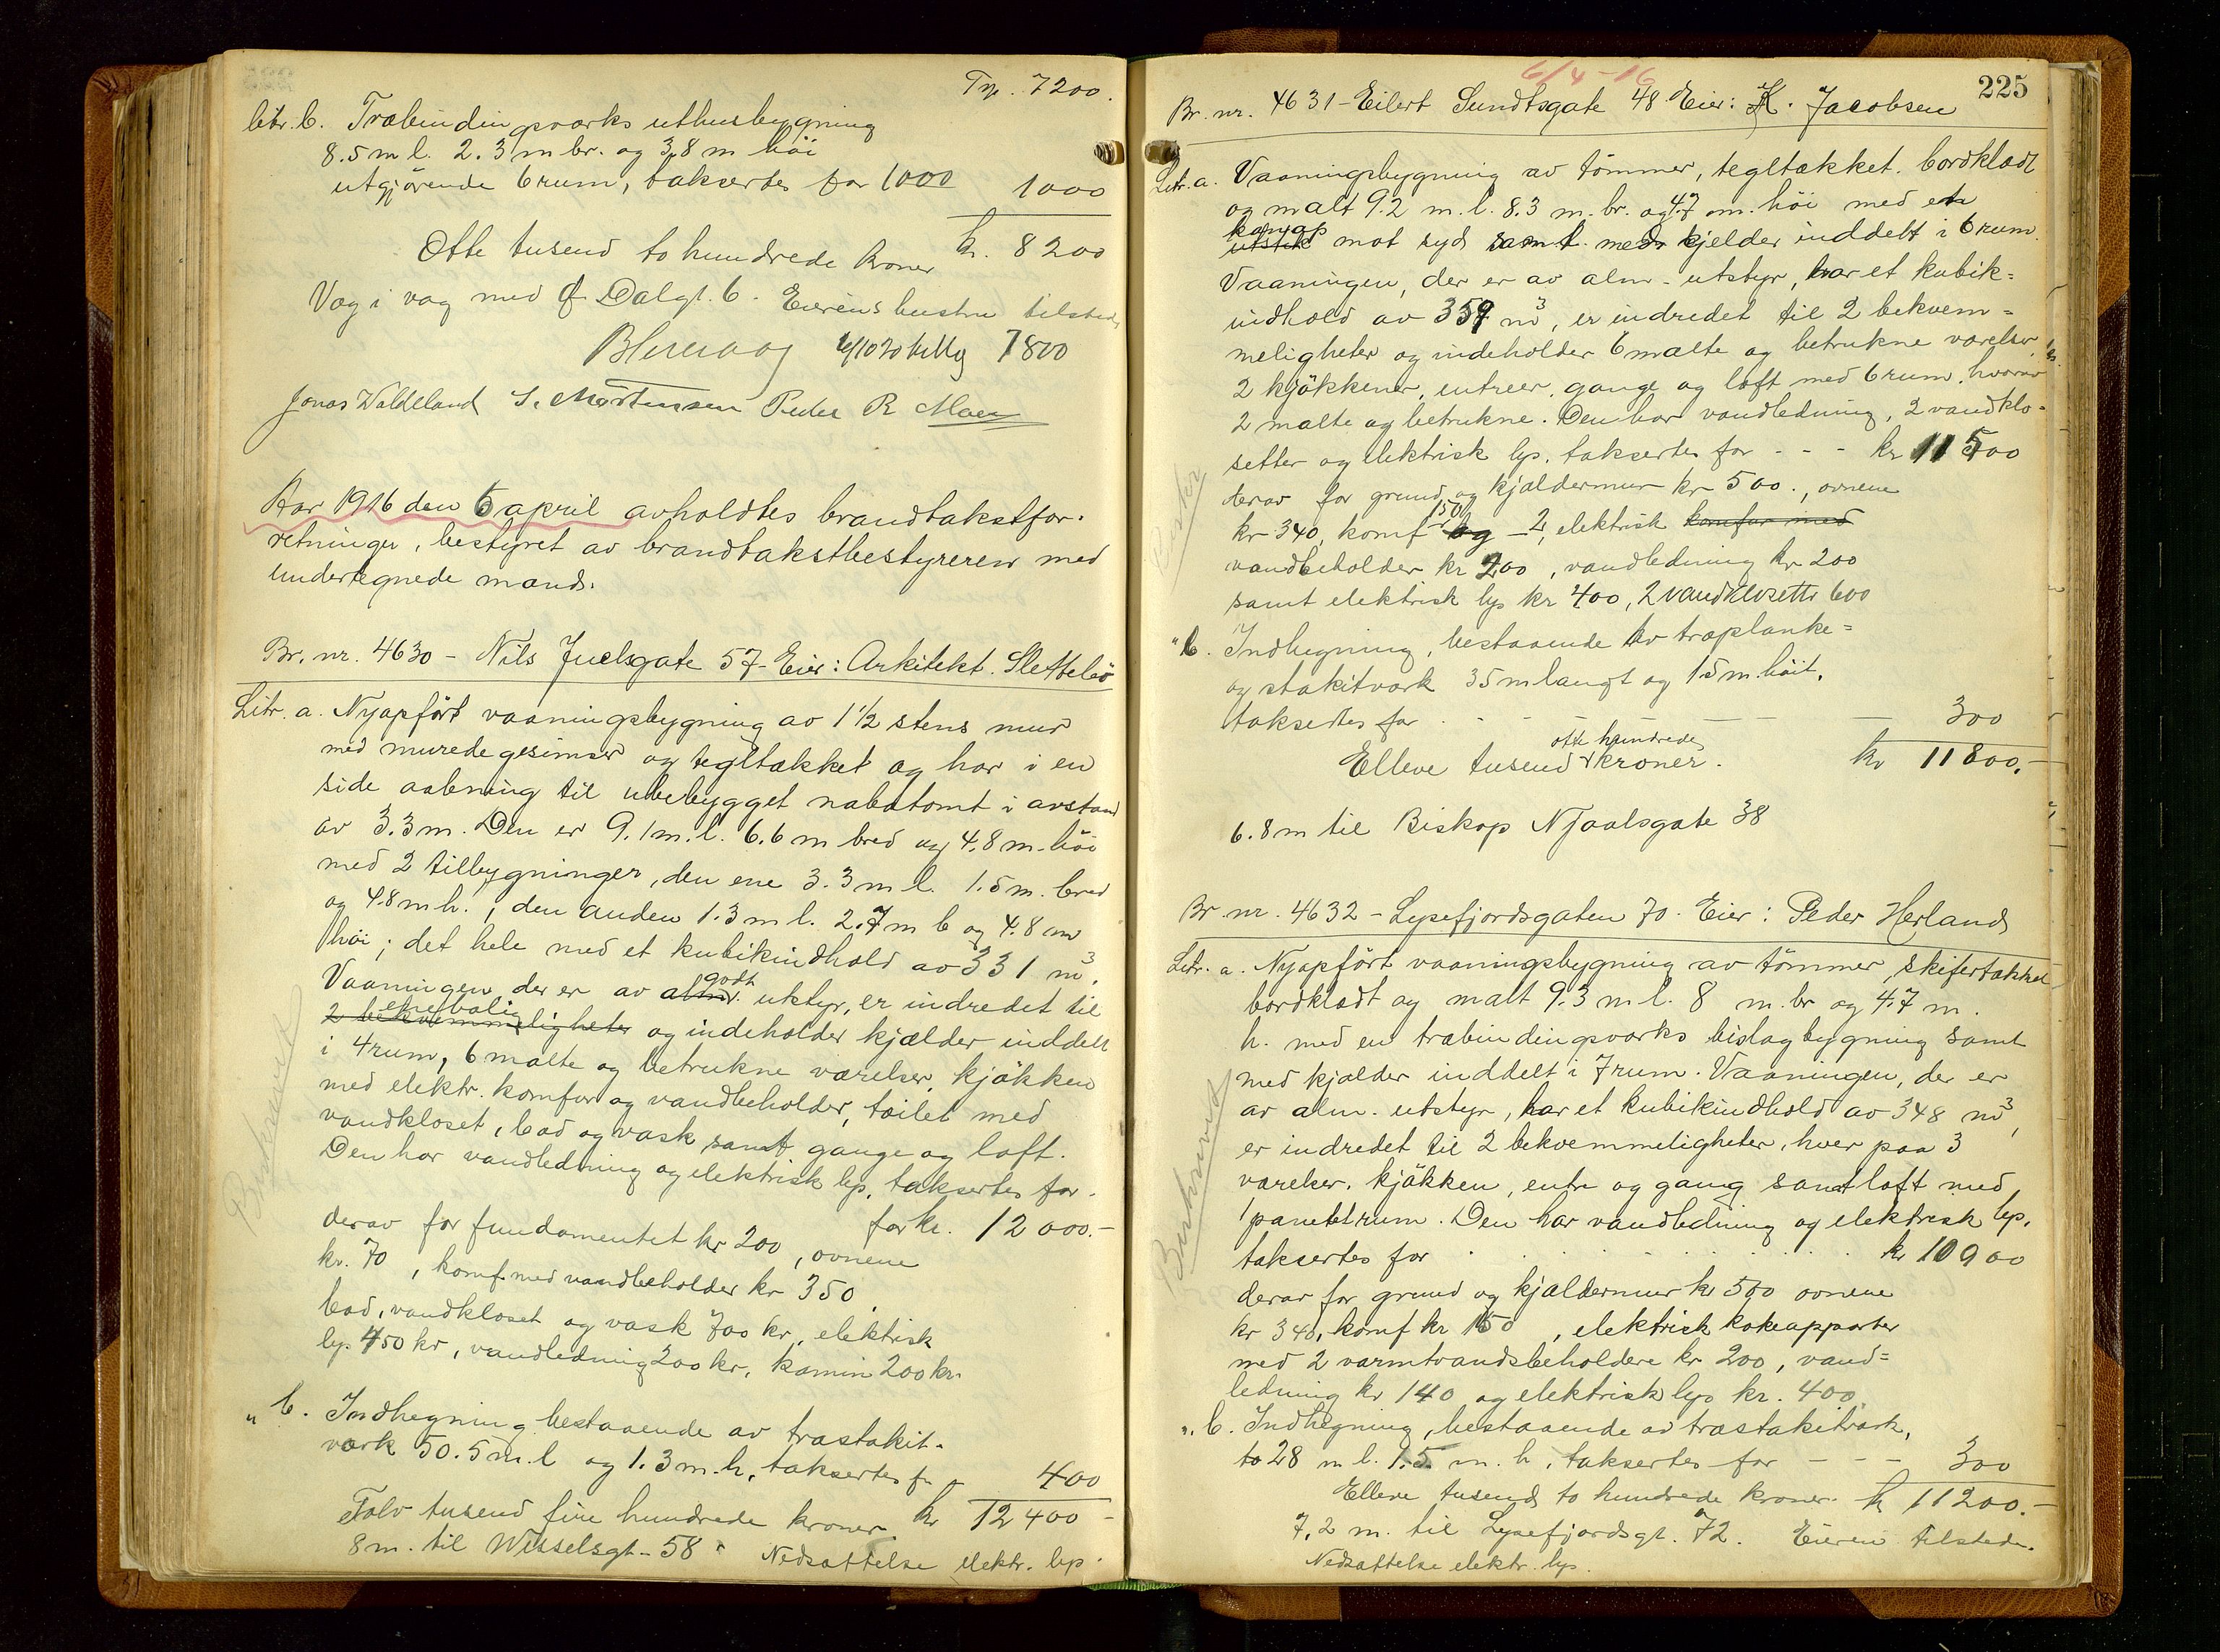 Trp. 7200.
litr. b. Træbindingsværks uthusbygning
8.5 m l. 2.3 m br. og 3,8 m höi
utgjörende 6 rum, taksertes for 1000 1000
Otte tusend to hundrede kroner kr. 8200
Væg i væg med Dalgt. 6. Eierens hustru tilstede
7800
Jonas Waldeland S. Mortensen Peder R. Moen
Aar 1916 den 6 april avholdtes brandtakstfor-
retninger, bestyret av brandtakstbestyreren med
undertegnede mænd.
Br. nr. 4630 - Nils Juelsgate 57 - Eier: Arkitekt. Slettebö
Litr. a. Nyopfört vaaningsbygning av 1 1/2 stens mur
med murede gesimser og tegltækket og har i en
side aabning til ubebygget nabotomt i avstand
av 3.3 m. Den er 9.1 m. l. 6.6 m bred og 4.8 m. höi
med 2 tilbygninger, den ene 3.3 m l. 1.5 m. bred
og 4.8 m h., den anden 1.3 m l. 2.7 m b og 4.8 m
höi; det hele med et kubikindhold av 331 m³.
Vaaningen der er av alm. godt utstyr, er indredet til
2 bekvemmeligheter enebolig og indeholder kjælder inddelt
i 4 rum, 6 malte og betrukne værelser, kjökken
med elektr. komfur og vandbeholder, toilet med
vandkloset, bad og vask samt gange og loft.
Den har vandledning og elektrisk lys, taksertes for
for kr. 12 000.-
derav for fundamentet kr 200, ovnene
kr. 70, komf. med vandbeholder kr 350,
bad, vandkloset og vask 700 kr, elektrisk
lys 450 kr, vandledning 200 kr, kamin 200 kr.
" b. Indhegning bestaaende av træstakit-
værk 50.5 m. l og 1.3 m. h, taksertes for 400
Tolv tusend fire hundrede kroner. kr 12 400 -
8 m. til Wesselsgt. 58. Nedsættelse elektr. lys.
6/4-16
225
Br. nr. 4631 - Eilert Sundtsgate 48 Eier: K. Jacobsen
Litr. a. Vaaningsbygning av tömmer, tegltækket. bordklædt
og malt 9.2 m. l. 8.3 m. br. og 4.7 m. höi med et
utstik mot syd samt med kjelder inddelt i 6 rum.
Vaaningen, der er av alm. utstyr, har et kubik=
indhold av 359 m³, er indredet til 2 bekvem=
meligheter og indeholder 6 malte og betrukne værelser,
2 kjökkener, entreer, gange og loft med 6 rum, hvorav
2 malte og betrukne. Den har vandledning, 2 vandklo-
setter og elektrisk lys. taksertes for - - - kr 11500
derav for grund og kjældermur kr 500., ovnene
kr 340, komf 150 og 2 elektrisk komfur med
vandbeholder kr 200, vandledning kr 200
samt elektrisk lys kr 400, 2 vandklosetter 600
" b. Indhegning, bestaaende av træplanke=
og stakitværk 35 m langt og 1.5 m. höit,
taksertes for - - - 300
Elleve tusend otte hundrede kroner. kr 11800.-
6.8 m til Biskop Njaalsgate 38
Br. nr. 4632 - Lysefjordsgaten 70. Eier: Peder Herland
Litr. a. Nyopfört vaaningsbygning av tömmer, skifertækket
bordklædt og malt 9.3 m l. 8 m. br og 4.7 m.
h. med en træbindingsværks bislagbygning samt
med kjælder inddelt i 7 rum. Vaaningen, der er
av alm. utstyr, har et kubikindhold av 348 m³,
er indredet til 2 bekvemmeligheter, hver paa 3
værelser, kjökken, entre og gang samt loft med
1 panelt rum. Den har vandledning og elektrisk lys.
taksertes for . . . kr 10900
derav for grund og kjældermur kr 500 ovnene
kr 340, komf kr 150, elektrisk kokeapparter
med 2 varmtvandsbeholdere kr 200, vand=
ledning kr 140 og elektrisk lys kr. 400.
". b. Indhegning, bestaaende av træstakitværk,
to 28 m l. 1.5 m. h, taksertes for - - - 300
Elleve tusend to hundrede kroner. kr 11200.-
7,2 m. til Lysefjordsgt. 72. Eieren tilstede.
Nedsættelse elektr. lys.